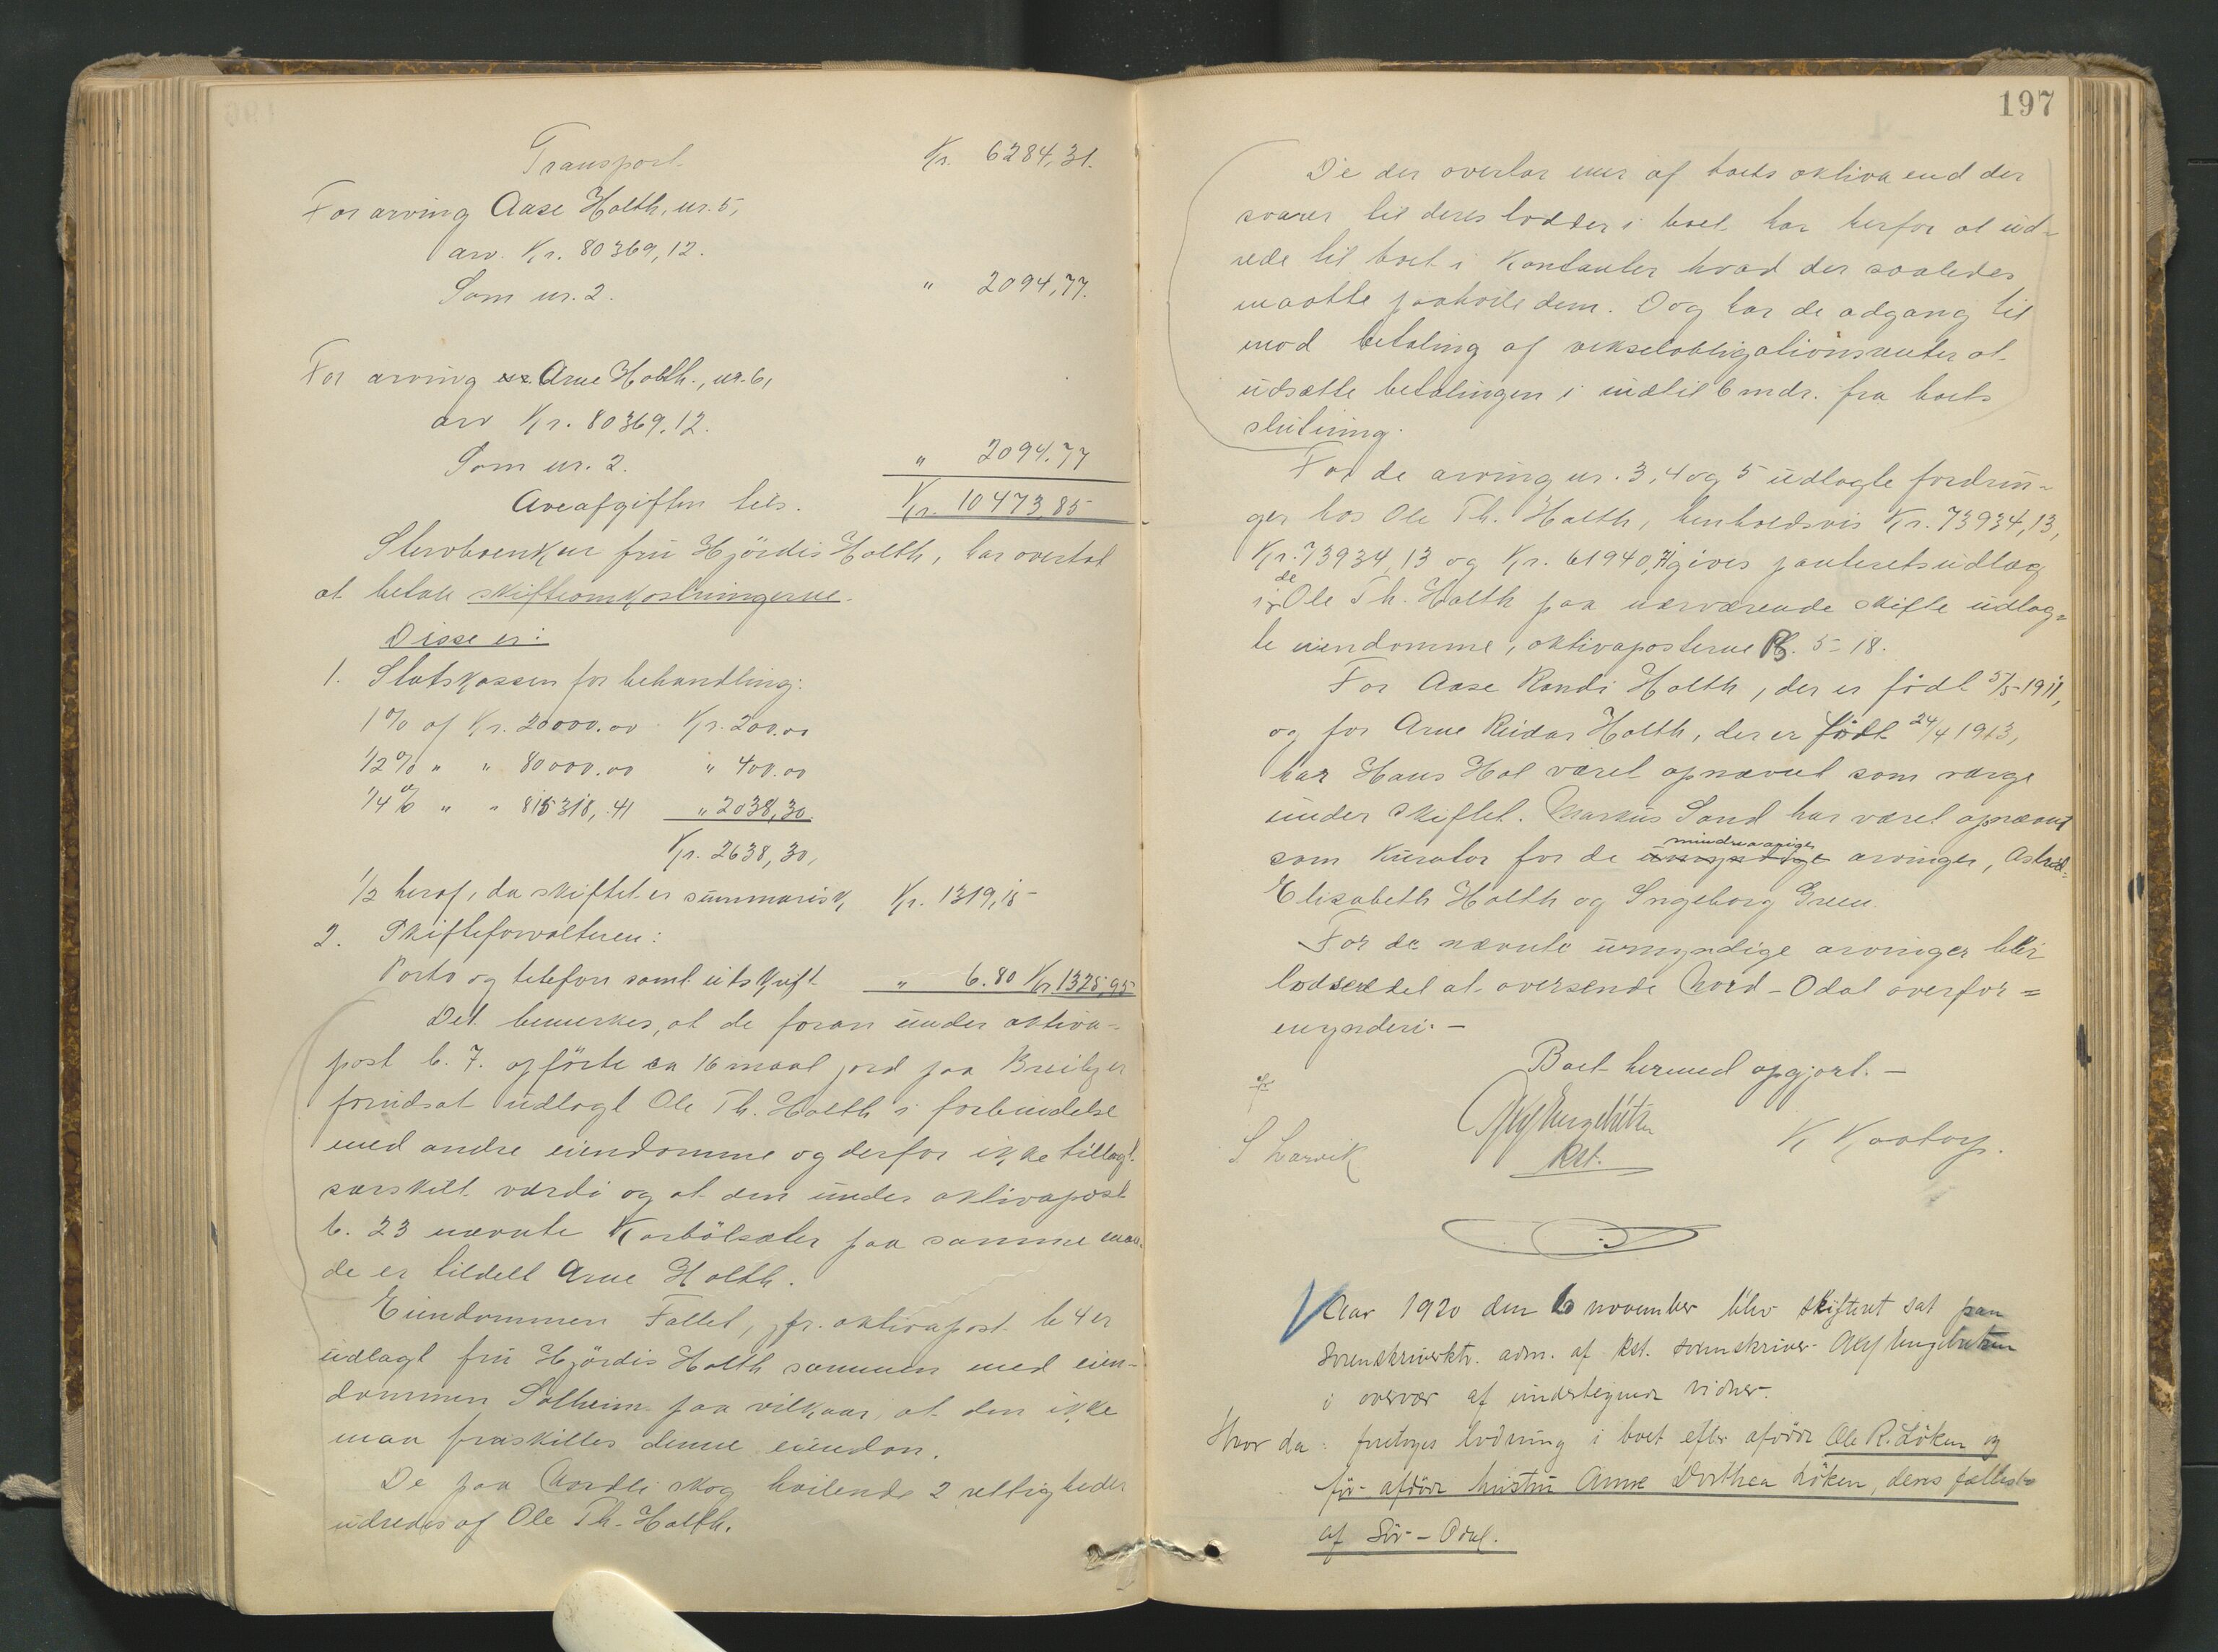 Transport Kr. 6284,31.
For arving Aase Holth, nr. 5,
arv. Kr. 80369,12.
Som nr. 2. " 2094,77.
For arving Arne Holth., nr. 6,
arv Kr. 80369,12.
Som nr. 2. " 2094.77
Arveafgiften tils. Kr. 10473,85
Stervboenken fru Hjördis Holth, har overtat
at betale skifteomkostningerne.
Disse er:
1. Statskassen for behandling:
1% af Kr. 20000.00 Kr. 200.00
1/2% " " 80000.00 " 400.00
1/4% " " 815318,41 " 2038,30.
Kr. 2638,30,
1/2 heraf, da skiftet er summarisk, Kr. 1319,15
2. Skifteforvalteren:
Porto og telefon samt utskrift " 6.80 Kr. 1325,95
Det bemerkes, at de foran under aktiva-
post b. 7. opförte ca 16 maal jord paa er
forudsat udlagt Ole Th. Holth i forbindelse
med andre eiendomme og derfor ikke tillagt
særskilt værdi og at den under aktivapost
b. 23 nævnte Karbölsæter paa samme maa-
de er tildelt Arne Holth.
Eiendommen Fallet, jfr. aktivapost b 4 er
udlagt fru Hjördis Holth sammen med eien-
dommen Solheim paa vilkaar, at den ikke
maa fraskilles denne eiendom.
De paa Nordli skog hvilende 2 rettigheder
udredes af Ole Th. Holth.
197
De der overtar mer af boets aktiva end der
svarer til deres lodder i boet har herfor at ud-
rede til boet i kontanter hvad der saaledes
maatte paahvile dem. Dog har de adgang til
mod betaling af vekselobligationsrenter at
udsætte betalingen i indtil 6 mdr. fra boets
slutning.
For de arving nr. 3, 4 og 5 udlagte fordrin-
ger hos Ole Th. Holth, henholdsvis Kr. 73934,13,
Kr. 73934,13 og Kr. 61940,71 gives panteretsudlæg
i de Ole Th. Holth paa nærværende skifte udlag-
te eiendomme, aktivaposterne B. 5-18.
For Aase Randi Holth, der er födt 5/5-1911,
og for Arne Reidar Holth, der er födt 24/4 1913,
har Hans Hol været opnævnt som værge
under skiftet. Markus Sand har været opnævnt
som kurator for de mindreaarige umyndige arvinger, Astrid
Elisabeth Holth og Ingeborg Green.
For de nævnte umyndige arvinger blir
lodseddel at oversende Nord-Odal overfor=
mynderi. -
Boet hermed opgjort. -
S. Larvik Alf Engebretsen K Kaatorp.
Kst.
Aar 1920 den 6 november blev skifteret sat paa
sorenskriverktr. adm. af kst. sorenskriver Alf Engebretsen
i overvær af undertegnede vidner.
Hvor da: foretoges lodning i boet efter afdöde Ole R. Löken og
för afdöde hustru Anne Dorthea Löken, deres fællesbo
af Sör-Odal.